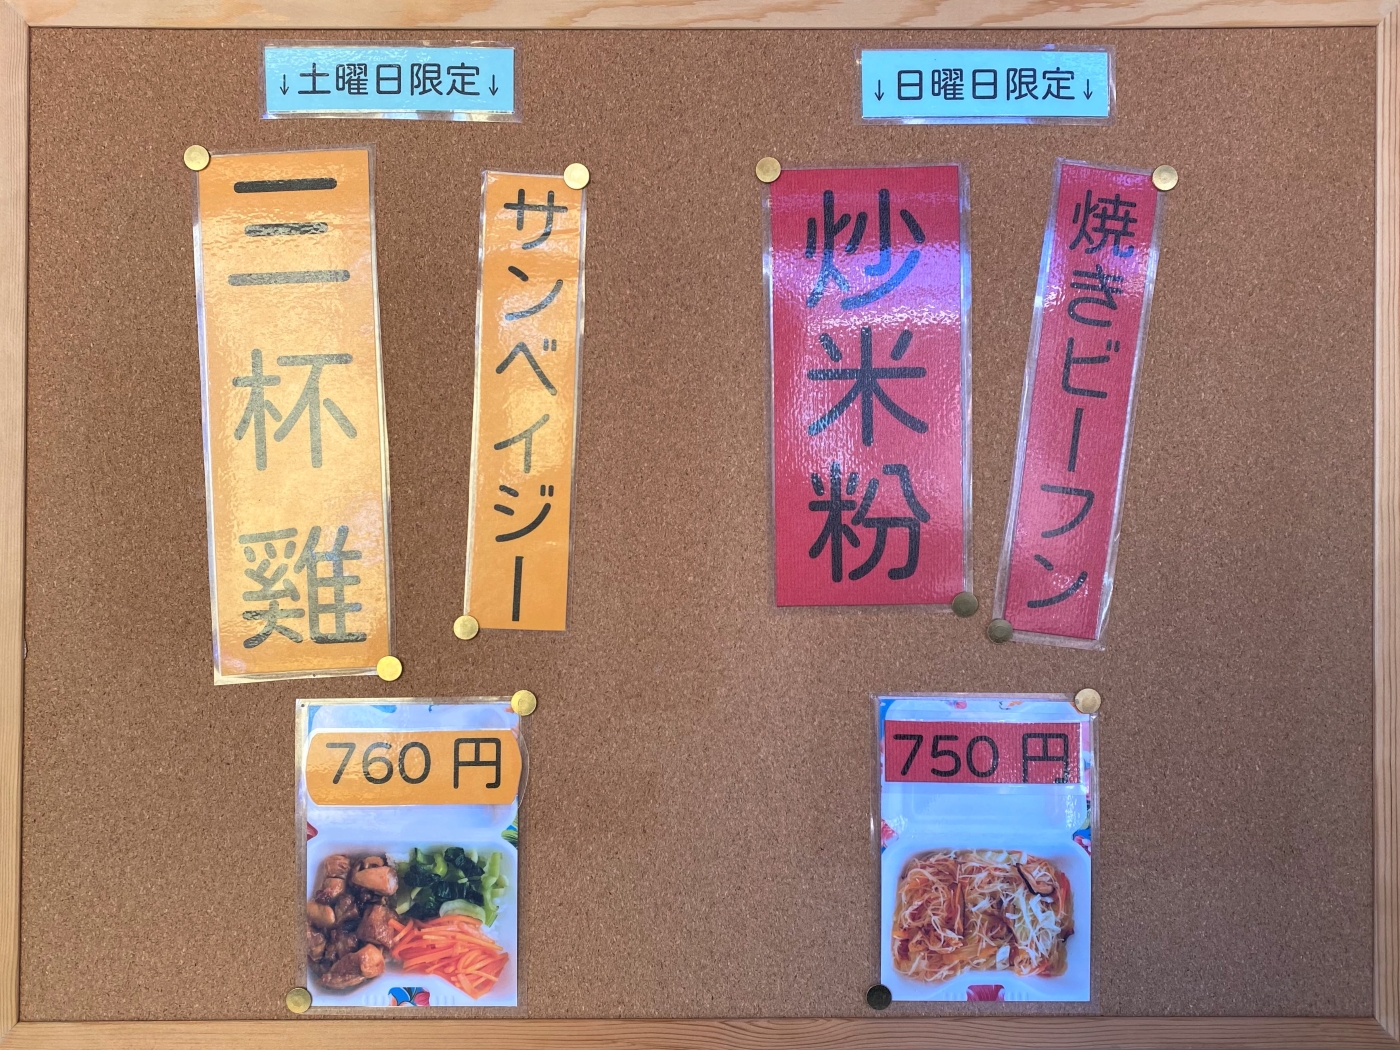 ↓土曜日限定↓
三杯雞
サンベイジー
760円
↓日曜日限定↓
炒米粉
焼きビーフン
750円